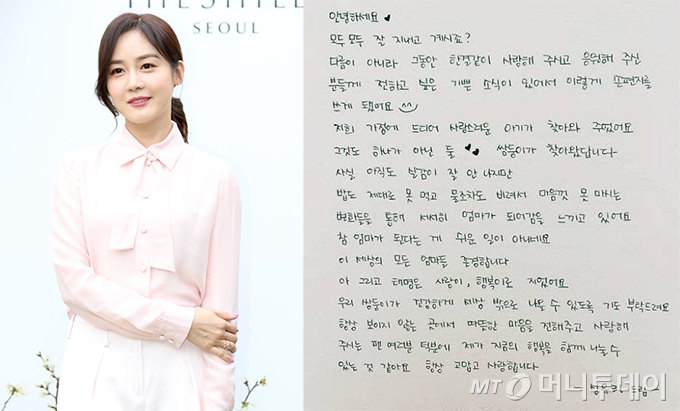 THE SHILLA
SEOUL
안녕하세요 ♥
모두모두 잘 지내고 계시죠?
다름이 아니라 그동안 한결같이 사랑해 주시고 응원해 주신
분들께 전하고 싶은 기쁜 소식이 있어서 이렇게 손편지를
쓰게 됐어요 ^^
저희 가정에 드디어 사랑스러운 아기가 찾아와 주었어요
그것도 하나가 아닌 둘 ♥♥ 쌍둥이가 찾아왔답니다
사실 아직도 실감이 잘 안 나지만
밥도 제대로 못 먹고 물조차도 비려서 마음껏 못 마시는
변화들을 통해 서서히 엄마가 되어감을 느끼고 있어요
참 엄마가 된다는 게 쉬운 일이 아니네요
이 세상의 모든 엄마들 존경합니다
아 그리고 태명은 사랑이, 행복이로 지었어요
우리 쌍둥이가 건강하게 세상 밖으로 나올 수 있도록 기도 부탁드려요
항상 보이지 않는 곳에서 따뜻한 마음을 전해주고 사랑해
주시는 팬 여러분 덕분에 제가 지금의 행복을 함께 나눌 수
있는 것 같아요 항상 고맙고 사랑합니다
- 성유리 드림 -
MT 머니투데이